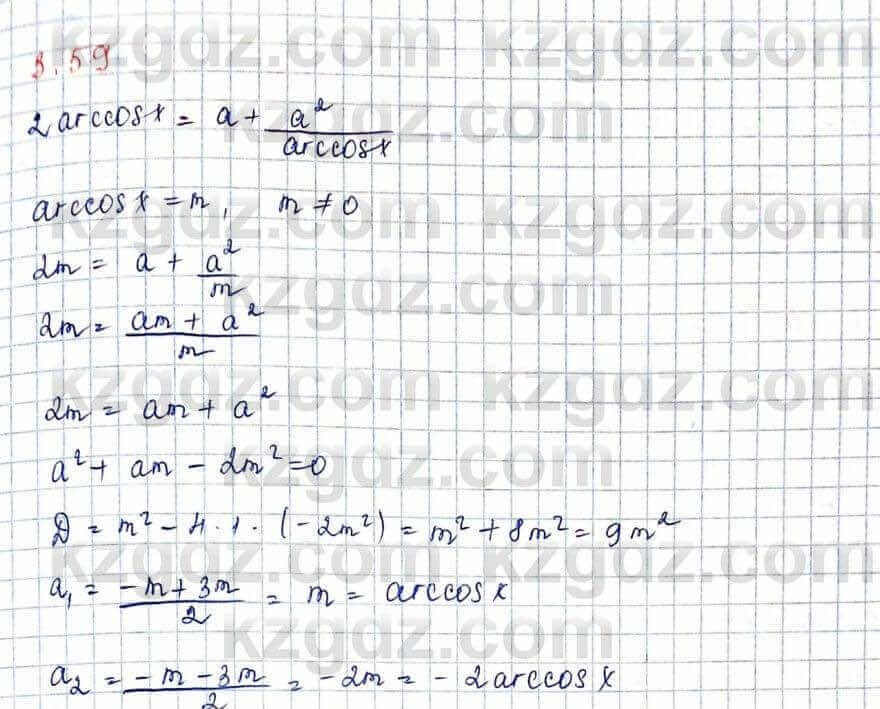 3.59
2 arccosx = a + a²/arccosx
arccosx = m, m ≠ 0
2m = a + a²/m
2m = (am + a²)/m
2m = am + a²
a² + am - 2m² = 0
D = m² - 4·1·(-2m²) = m² + 8m² = 9m²
a₁ = (-m + 3m)/2 = m = arccosx
a₂ = (-m - 3m)/2 = -2m = -2arccosx
kzgdz.com
kzgdz.com
kzgdz.com
kzgdz.com
kzgdz.com
kzgdz.com
kzgdz.com
kzgdz.com
kzgdz.com
kzgdz.com
kzgdz.com
kzgdz.com